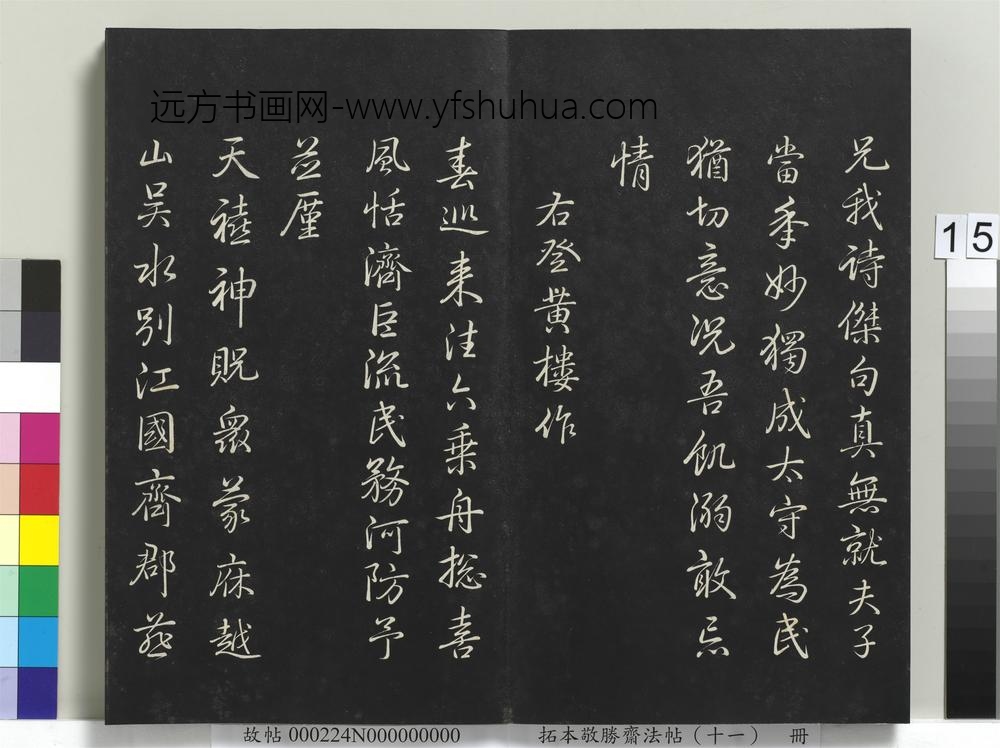 兄我诗傑句真無就夫子
當年妙獨成太守為民
猶切意况吾飢溺敢忘
情
右登黄樓作
春巡来往六乗舟揔喜
風恬濟巨流民務河防予
並廑
天禧神貺衆蒙庥越
山吴水别江國齊郡
远方书画网-www.yfshuhua.com
15
故帖 000224N000000000
拓本敬勝齋法帖（十一） 冊